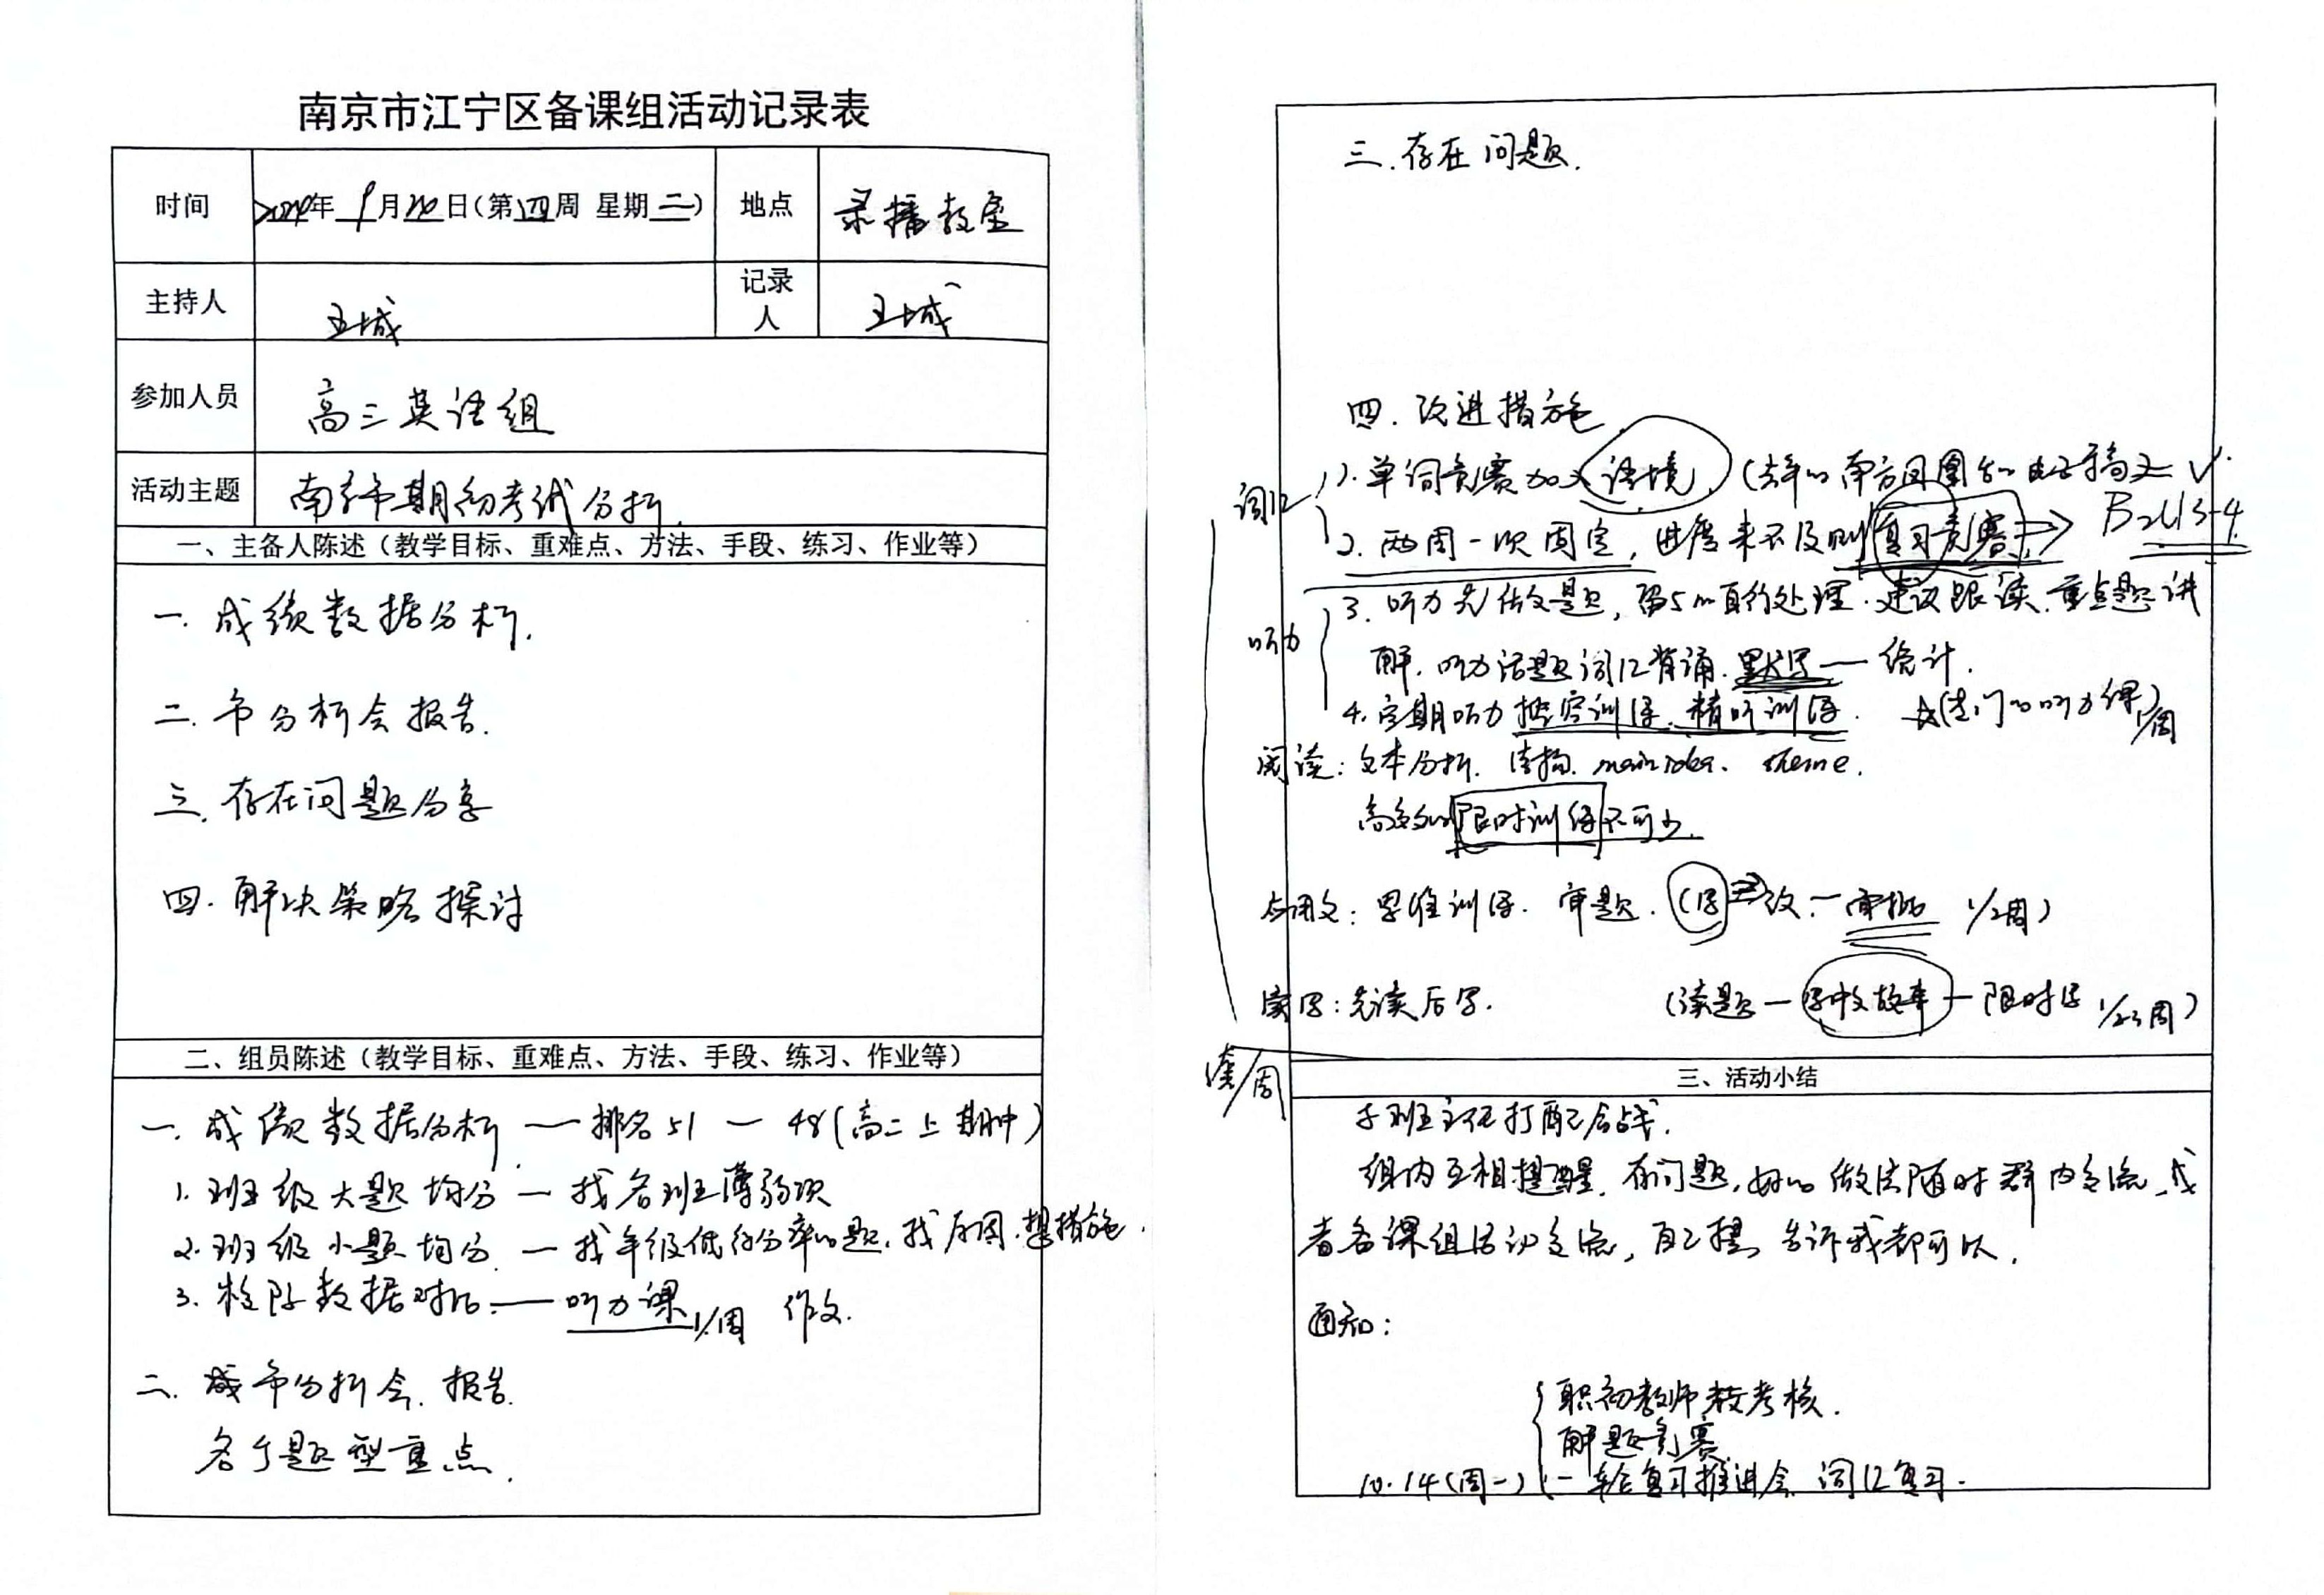 南京市江宁区备课组活动记录表
时间 2024年 9月 日(第四周 星期二) 地点 录播教室
主持人 王城 记录人 王城
参加人员 高三英语组
活动主题 南京市期初考试分析.
一、主备人陈述（教学目标、重难点、方法、手段、练习、作业等）
一. 成绩数据分析.
二. 市分析会报告.
三. 存在问题分享
四. 解决策略探讨
二、组员陈述（教学目标、重难点、方法、手段、练习、作业等）
一. 成绩数据分析 — 排名51 — 48(高二上期中)
1. 班级大题均分 — 找各班薄弱项
2. 班级小题均分 — 找年级低得分率的题. 找原因. 想措施.
3. 校际数据对比 — 听力课 1/周 作文.
二. 市分析会. 报告.
各个题型重点.
三. 存在问题.
四. 改进措施
词汇
1. 单词竞赛加入语境. (去年的南方凤凰台的电子稿 √.
2. 两周一次固定, 进度来不及则复习竞赛 → B2U3-4
听力
3. 听力先做题, 留5m自行处理. 建议跟读. 重点题讲
解. 听力话题词汇背诵. 默写 — 统计.
4. 定期听力挖空训练. 精听训练. ☆(专门的听力课) 1/周
阅读: 文本分析. 结构. main idea. theme.
高效的限时训练不可少.
应用文: 思维训练. 审题. (写 ⇒ 改 — 1/2周)
读写: 先读后写. (读题 — 写中文故事 — 限时写 1/2-3周)
/周
三、活动小结
与班主任打配合战.
组内互相提醒. 有问题, 好的做法随时群内交流. 或
者备课组活动交流, 自己 告诉我都可以.
通知:
职初教师教考核.
解题竞赛
10.14(周一) 一轮复习推进会 词汇复习.